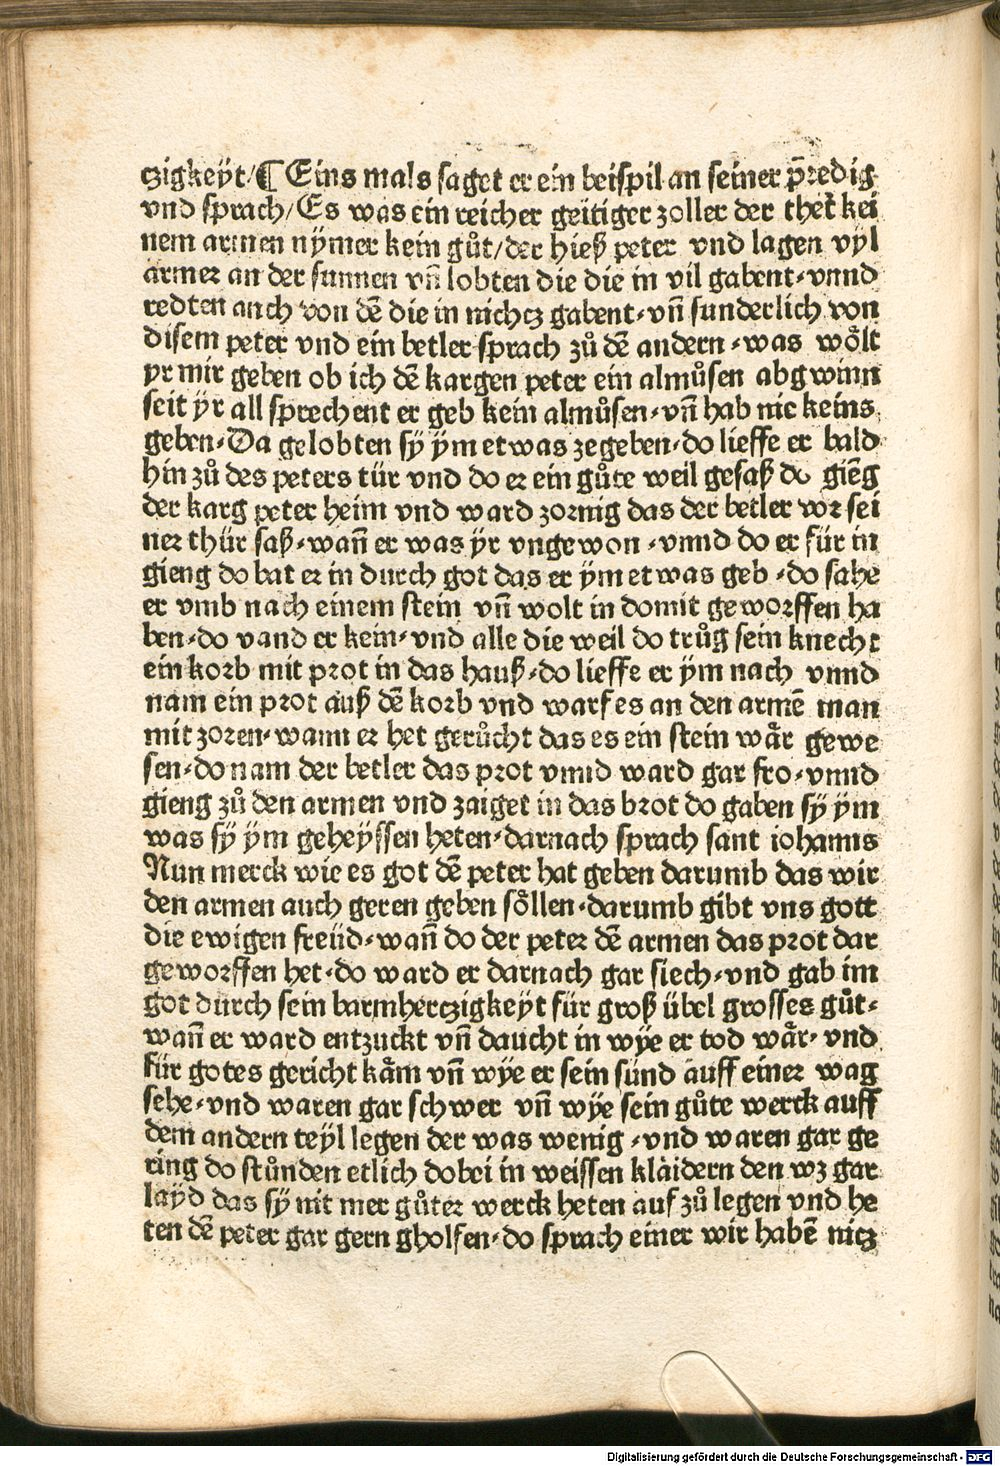 czigkeÿt/¶ Eins mals saget er ein beispil an seiner p̄redig
vnd sprach/Es was ein reicher geitiger zoller der thet kei
nem armen nÿmer kein gůt/der hieß peter vnd lagen vyl
armer an der sunnen vn̄ lobten die die in vil gabent·vnnd
redten auch von dē die in nichcz gabent·vn̄ sunderlich von
disem peter vnd ein betler sprach zů dē andern·was woͤlt
yr mir geben ob ich dē kargen peter ein almůsen abgwinn
seit ÿr all sprechent er geb kein almůsen·vn̄ hab nie keins
geben·Da gelobten sÿ ÿm etwas zegeben·do lieffe er bald
hin zů des peters tür vnd do er ein gůte weil gesaß do giēg
der karg peter heim vnd ward zornig das der betler vor sei
ner thür saß·wann̄ er was ÿr vngewon·vnnd do er für in
gieng do bat er in durch got das er ÿm etwas geb·do sahe
er vmb nach einem stein vn̄ wolt in domit geworffen ha
ben·do vand er kein·vnd alle die weil do trůg sein knecht
ein korb mit prot in das hauß·do lieffe er ÿm nach vnnd
nam ein prot auß dē korb vnd warf es an den armē man
mit zoren·wann er het gerůcht das es ein stein waͤr gewe
sen·do nam der betler das prot vnnd ward gar fro·vnnd
gieng zů den armen vnd zaiget in das brot do gaben sÿ ÿm
was sÿ ÿm geheÿssen heten·darnach sprach sant iohanns
Nun merck wie es got dē peter hat geben darumb das wir
den armen auch geren geben soͤllen·darumb gibt vns gott
die ewigen freüd·wan̄ do der peter dē armen das prot dar
geworffen het·do ward er darnach gar siech·vnd gab im
got durch sein barmherczigkeÿt für groß übel grosses gůt·
wan̄ er ward entzuckt vn̄ daucht in wÿe er tod waͤr·vnd
für gotes gericht kaͤm vn̄ wÿe er sein sünd auff einer wag
sehe·vnd waren gar schwer vn̄ wÿe sein gůte werck auff
dem andern teÿl legen der was wenig·vnd waren gar ge
ring do stůnden etlich dobei in weissen klaidern den wz gar
laÿd das sÿ nit mer gůter werck heten auf zů legen vnd he
ten dē peter gar gern gholfen·do sprach einer wir habē nicz
Digitalisierung gefördert durch die Deutsche Forschungsgemeinschaft - DFG